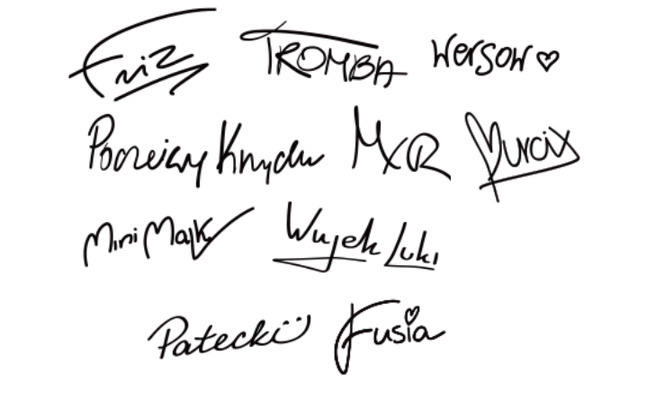 Friz TROMBA Wersow♡
Poczciwy Krzychu MxR Murcix
Mini Majk Wujek Luki
Patecki Fusia